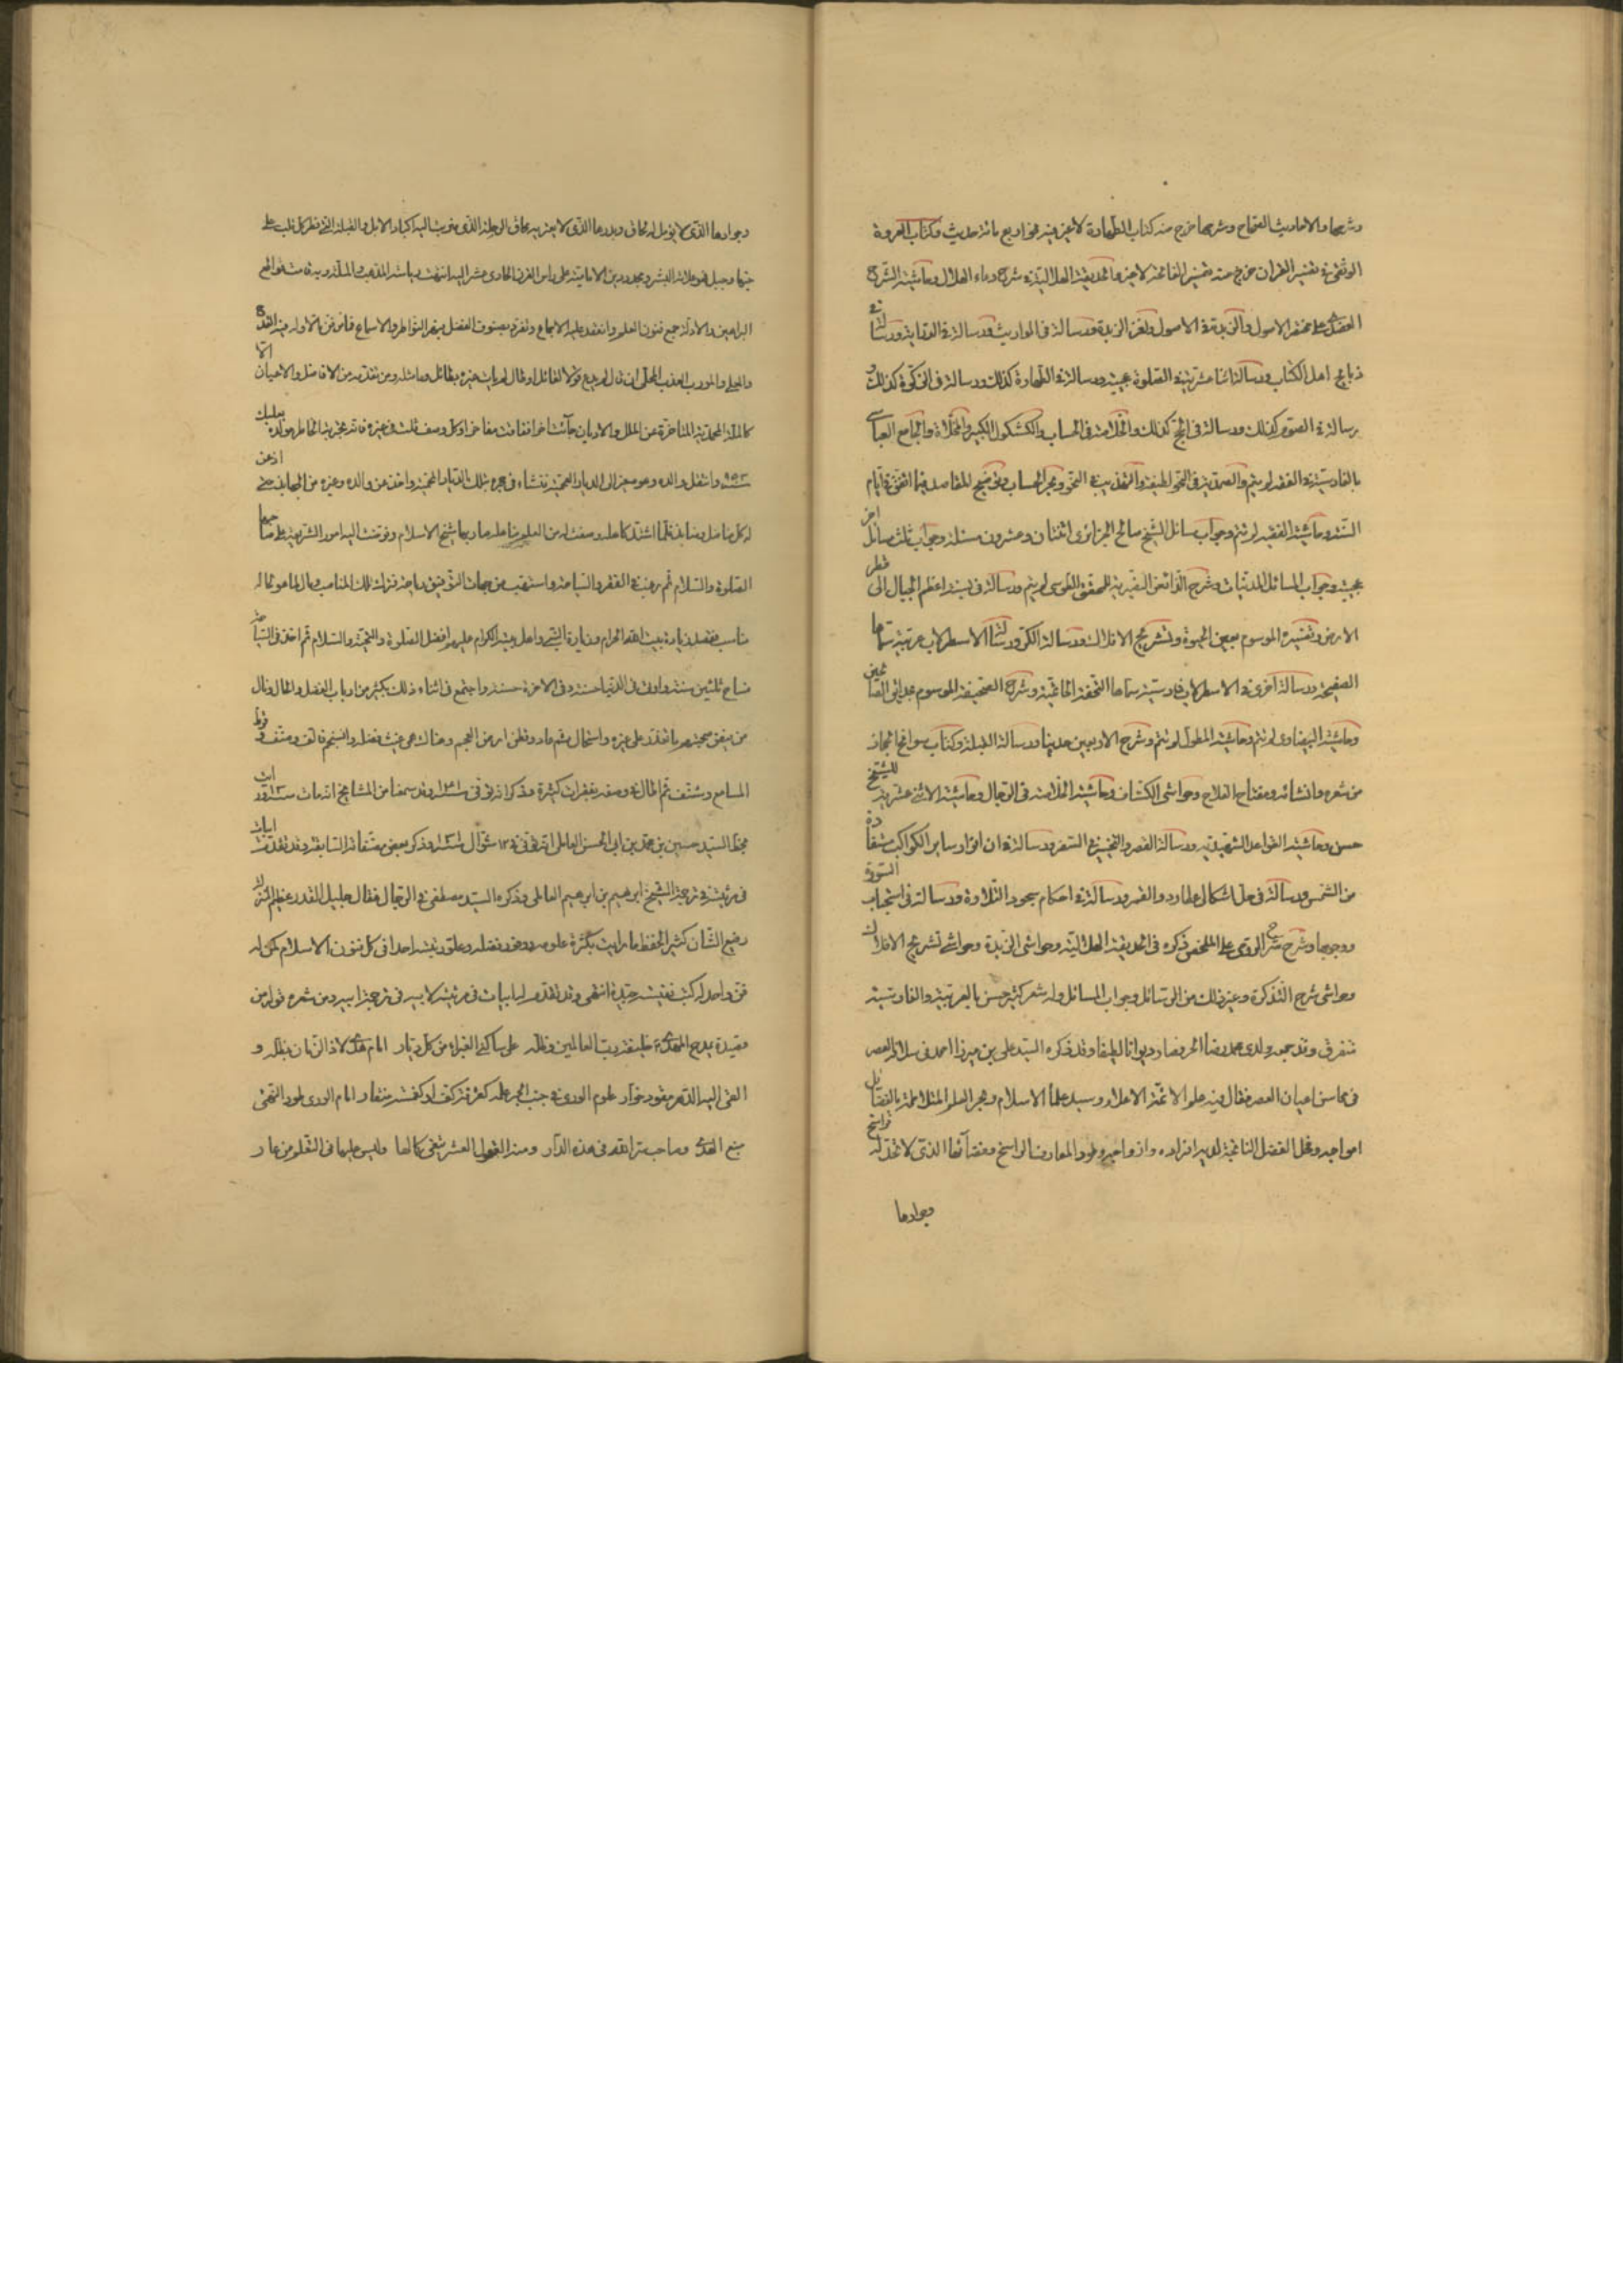 وشرحها والاحاديث الصحاح وشرحها خرج منه كتاب الطهارة لا غير فيه نحو اربع مائة حديث وكتاب العروة
الوثقى في تفسير القران خرج منه تفسير الفاتحة لا غير والحديقة الهلالية في شرح دعاء الهلال وحاشية الشرح
العضدى على مختصر الاصول والزبدة في الاصول ولغز الزبدة ورسالة في المواريث ورسالة في الدراية ورسالة في
ذبايح اهل الكتاب ورسالة اثنا عشرية في الصلوة عجيبة ورسالة في الطهارة كذلك ورسالة في الزكوة كذلك و
رسالة في الصوم كذلك ورسالة في الحج كذلك والخلاصة في الحساب والكشكول الكبير والمخلاة والجامع العباسي
بالفارسية في الفقه لم يتم والصمدية في النحو لطيفة والتهذيب في النحو وبحر الحساب وتوضيح المقاصد فيما اتفق في ايام
السنة وحاشية الفقيه لم يتم وجواب مسائل الشيخ صالح الجزائرى اثنتان وعشرون مسئلة وجواب ثلث مسائل اخر
عجيبة وجواب المسائل المدنيات وشرح الفرائض النصيرية للمحقق الطوسى لم يتم ورسالة في نسبة اعظم الجبال الى قطر
الارض وتفسيره الموسوم بعين الحيوة وتشريح الافلاك ورسالة الكر ورسالة الاسطرلاب عربية سماها
الصفيحة ورسالة اخرى في الاسطرلاب فارسية سماها التحفة الحاتمية وشرح الصحيفة الموسوم بحدائق الصالحين
وحاشية البيضاوى لم يتم وحاشية المطول لم يتم وشرح الاربعين حديثا ورسالة القبلة وكتاب سوانح الحجاز
من شعره وانشائه ومفتاح الفلاح وحواشى الكشاف وحاشية الخلاصة في الرجال وحاشية الاثنى عشرية للشيخ
حسن وحاشية القواعد الشهيدية ورسالة القصر والتخيير في السفر ورسالة في ان انوار ساير الكواكب مستفادة
من الشمس ورسالة في حل اشكالى عطارد والقمر ورسالة في احكام سجود التلاوة ورسالة في استحباب السورة
ووجوبها وشرح شرح الرومى على الملخص ذكره في الحديقة الهلالية وحواشى الزبدة وحواشي تشريح الافلاك
وحواشى شرح التذكرة وغير ذلك من الرسائل وجواب المسائل وله شعر كثير حسن بالعربية والفارسية
متفرق وقد جمعه ولدى محمد رضا الحر فصار ديوانا لطيفا وقد ذكره السيد على بن ميرزا احمد في سلافة العصر
في محاسن اعيان العصر فقال فيه علم الائمة الاعلام وسيد علماء الاسلام وبحر العلم المتلاطمة بالفضائل
امواجه وفحل الفضل الناتجة لديه افراده وازواجه وطود المعارف الراسخ وفضاؤها الذى لا تحد له فراسخ
وجوادها
وجوادها الذى لا يؤمل له لحاق وبدرها الذى لا يعتريه محاق الرحلة الذى ضربت اليه اكباد الابل والقبلة التي فطر كل قلب على
حبها وجبل فهو علامة البشر ومجدد دين الامامية على راس القرن الحادى عشر اليه انتهت رياسة المذهب والملة وبه قامت قواطع
البراهين والادلة جمع فنون العلم وانعقد عليه الاجماع وتفرد بصنوف الفضل فبهر النواظر والاسماع فما من فن الا وله فيه القدح
المعلى والمورد العذب المحلى ان قال لم يدع قولا لقائل او طال لم يات غيره بطائل وما مثله ومن تقدمه من الافاضل والاعيان الا
كالملة المحمدية المتاخرة عن الملل والاديان جاءت اخرا ففاقت مفاخرا وكل وصف قلت في غيره فانه تجربة الخاطر مولده بعلبك
سنة ٩٥٣ وانتقل والده وهو صغير الى الديار العجمية فنشاء في حجره بتلك الديار المحمية واخذ عن والده وغيره من الجهابذ حتى اذعن
له كل مناضل ومنابذ فلما اشتد كاهله وصفت له من العلم مناهله صار بها شيخ الاسلام وفوضت اليه امور الشريعة على صاحبها
الصلوة والسلام ثم رغب في الفقر والسياحة واستهب من مهاب التوفيق رياحه فترك تلك المناصب ومال لما هو لحاله
مناسب فقصد زيارة بيت الله الحرام وزيارة النبي واهل بيته الكرام عليهم افضل الصلوة والتحية والسلام ثم اخذ في السياحة
فساح ثلثين سنة واوتى في الدنيا حسنة وفي الاخرة حسنة واجتمع في اثناء ذلك بكثير من ارباب الفضل والحال ونال
من فيض صحبتهم ما تعذر على غيره واستحال ثم عاد وقطن ارض العجم وهناك همى غيث فضله وانسجم فالف وصنف وقرط
المسامع وشنف ثم اطال في وصفه بفقرات كثيرة وذكر انه توفى سنة ١٠٣١ وقد سمعنا من المشايخ انه مات سنة ١٠٣٠ وراءيت
بخط السيد حسين بن محمد بن ابى الحسن العاملى انه توفى في ١٢ شوال سنة وذكر بعض مصنفاته السابقة وقد تقدمت ابيات
في مرثيته في ترجمة الشيخ ابرهيم بن ابرهيم العاملى وذكره السيد مصطفى في الرجال فقال جليل القدر عظيم المنزلة
رفيع الشان كثير الحفظ ما رايت بكثرة علومه ووفور فضله وعلو رتبته احدا في كل فنون الاسلام كمن له
فن واحد له كتب نفيسة جيدة انتهى وقد تقدم له ابيات في مرثيته لابيه في ترجمة ابيه ومن شعره قوله من
قصيدة يمدح المهدى ع خليفة رب العالمين وظله على ساكنى الغبراء من كل ديار امام هدى لاذ الزمان بظله و
القى اليه الدهر مقود خوار علوم الورى في جنب ابحر علمه كغرفة كف او كغمسة منقار امام الورى طود النهى
منبع الهدى وصاحب سر الله في هذه الدار ومنه العقول العشر تبغى كمالها وليس عليها في التعلم من عار